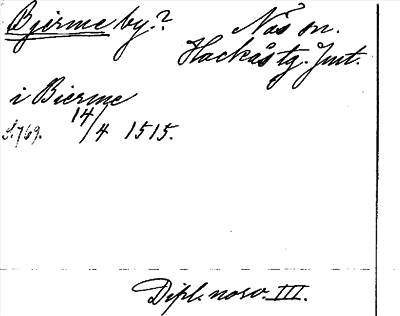 Bjerme by.? Näs sn.
Hackås tg. Jmt.
i Bierme
14/4 1515.
S. 769.
Dipl. norv. III.